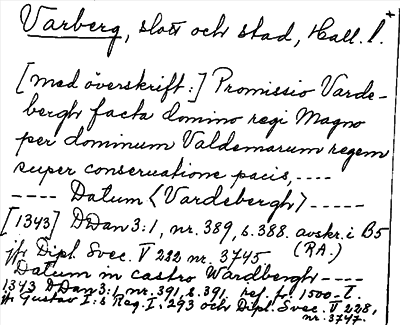 Varberg, slott och stad, Hall. l. +
[med överskrift:] Promissio Varde-
bergh facta domino regi Magno
per dominum Valdemarum regem
super conseruatione pacis, ----
---- Datum <Vardebergh> -----
[1343] DDan 3:1, nr. 389, s. 388. avskr. i B5
(RA.)
jfr Dipl. Svec. V 222 nr. 3745.
Datum in castro Wardbergh ----
1343 DDan 3:1, nr. 391, s. 391, ref. fr. 1500-t.
jfr Gustav I:s Reg. I: 293 och Dipl. Svec. V 228,
nr. 3747.